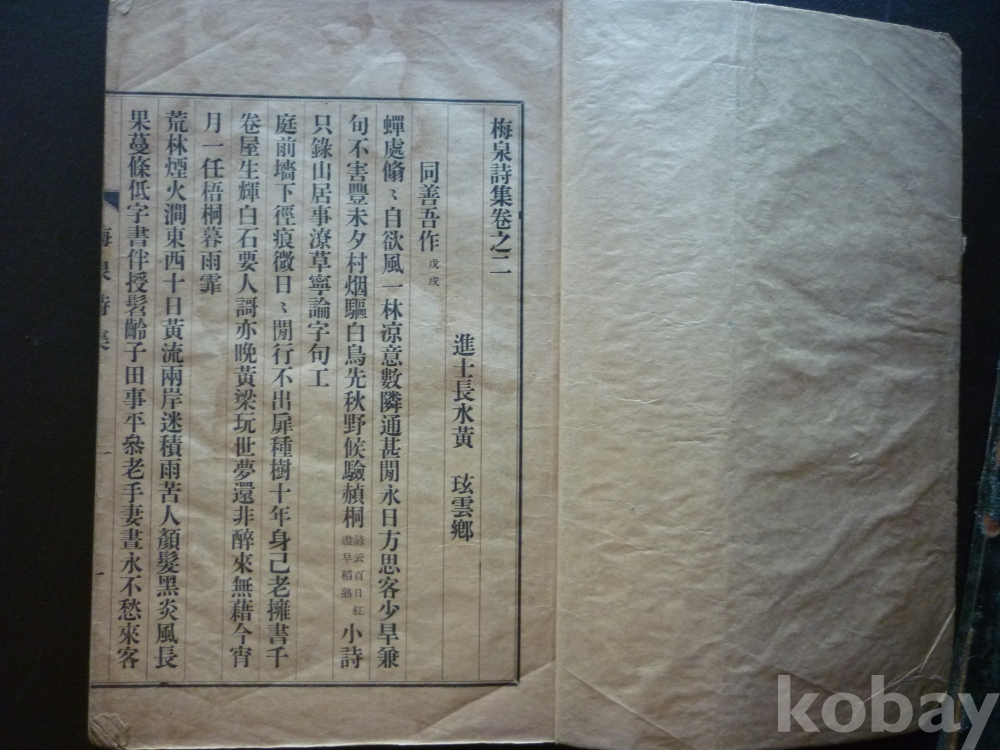 梅泉詩集卷之二
進士長水黃 玹雲鄉
同善吾作 戊戌
蟬處翛〻自欲風一林凉意數隣通甚閒永日方思客少旱兼
句不害豐未夕村烟驅白鳥先秋野候驗赬桐 諺云百日紅盡早稻熟 小詩
只錄山居事潦草寧論字句工
庭前墻下徑痕微日〻閒行不出扉種樹十年身己老擁書千
卷屋生輝白石要人謌亦晚黃梁玩世夢還非醉來無藉今宵
月一任梧桐暮雨霏
荒林煙火澗東西十日黃流兩岸迷積雨苦人顏髮黑炎風長
果蔓條低字書伴授髫齡子田事平叅老手妻晝永不愁來客
梅泉詩集
一
kobay